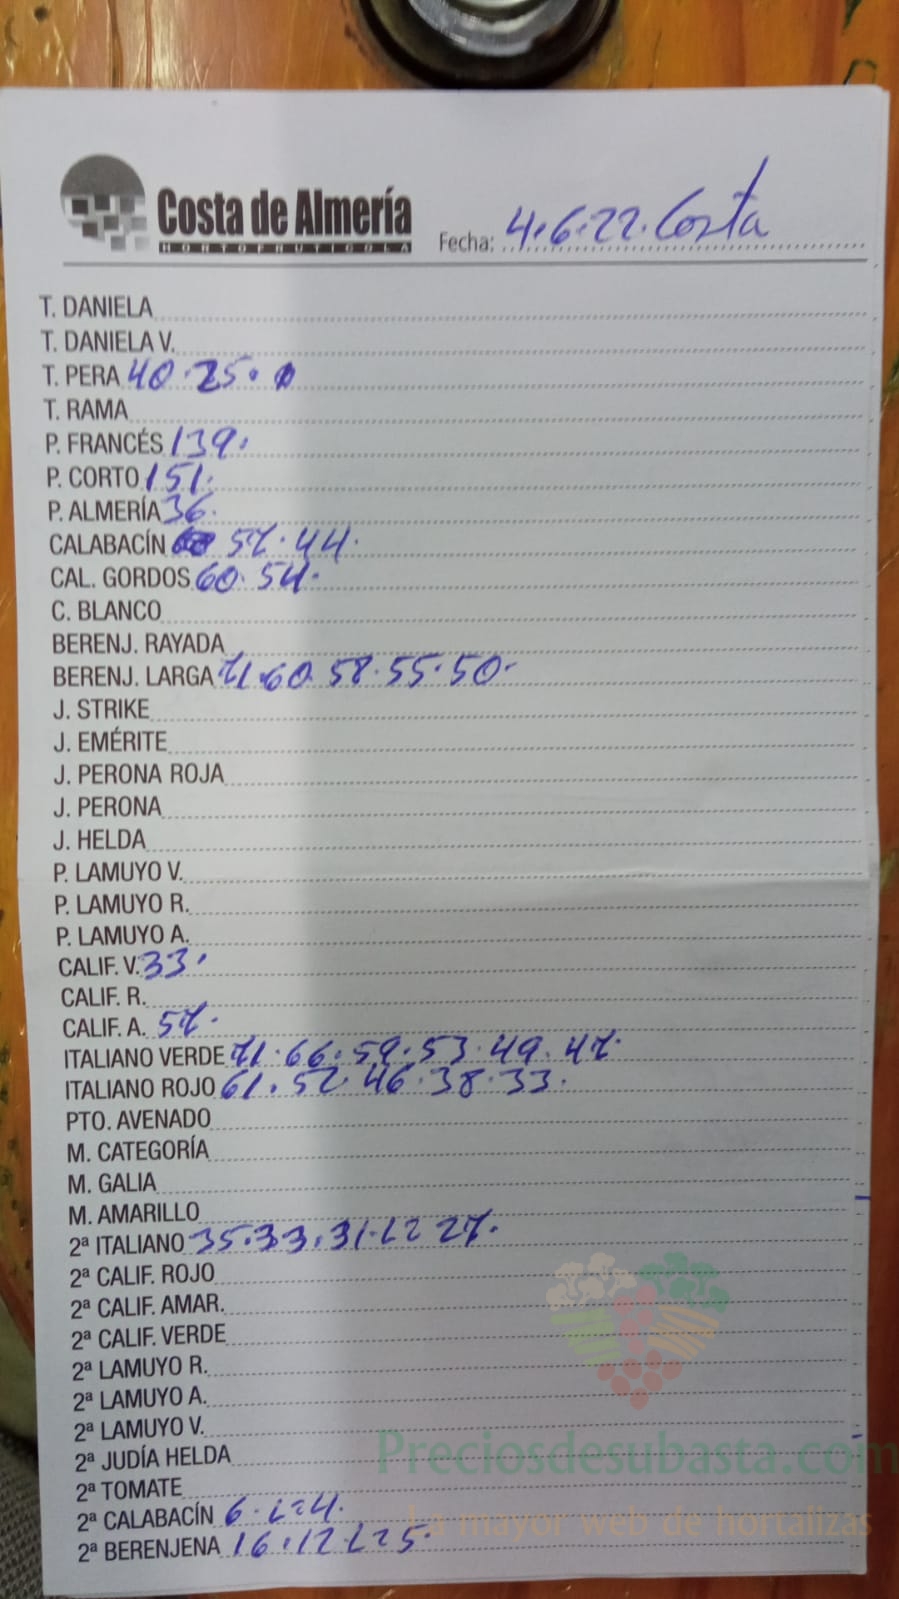 Costa de Almería
HORTOFRUTICOLA
Fecha: 4.6.22. Costa
T. DANIELA
T. DANIELA V.
T. PERA 40.25.
T. RAMA
P. FRANCÉS 139.
P. CORTO 151.
P. ALMERÍA 36.
CALABACÍN 57.44.
CAL. GORDOS 60.54.
C. BLANCO
BERENJ. RAYADA
BERENJ. LARGA 71.60.58.55.50.
J. STRIKE
J. EMÉRITE
J. PERONA ROJA
J. PERONA
J. HELDA
P. LAMUYO V.
P. LAMUYO R.
P. LAMUYO A.
CALIF. V. 33.
CALIF. R.
CALIF. A. 57.
ITALIANO VERDE 71.66.59.53.49.47.
ITALIANO ROJO 61.52.46.38.33.
PTO. AVENADO
M. CATEGORÍA
M. GALIA
M. AMARILLO
2ª ITALIANO 35.33.31. 27.
2ª CALIF. ROJO
2ª CALIF. AMAR.
2ª CALIF. VERDE
2ª LAMUYO R.
2ª LAMUYO A.
2ª LAMUYO V.
2ª JUDÍA HELDA
2ª TOMATE
2ª CALABACÍN 6. 4.
2ª BERENJENA 16.12 5.
Preciosdesubasta.com
La mayor web de hortalizas